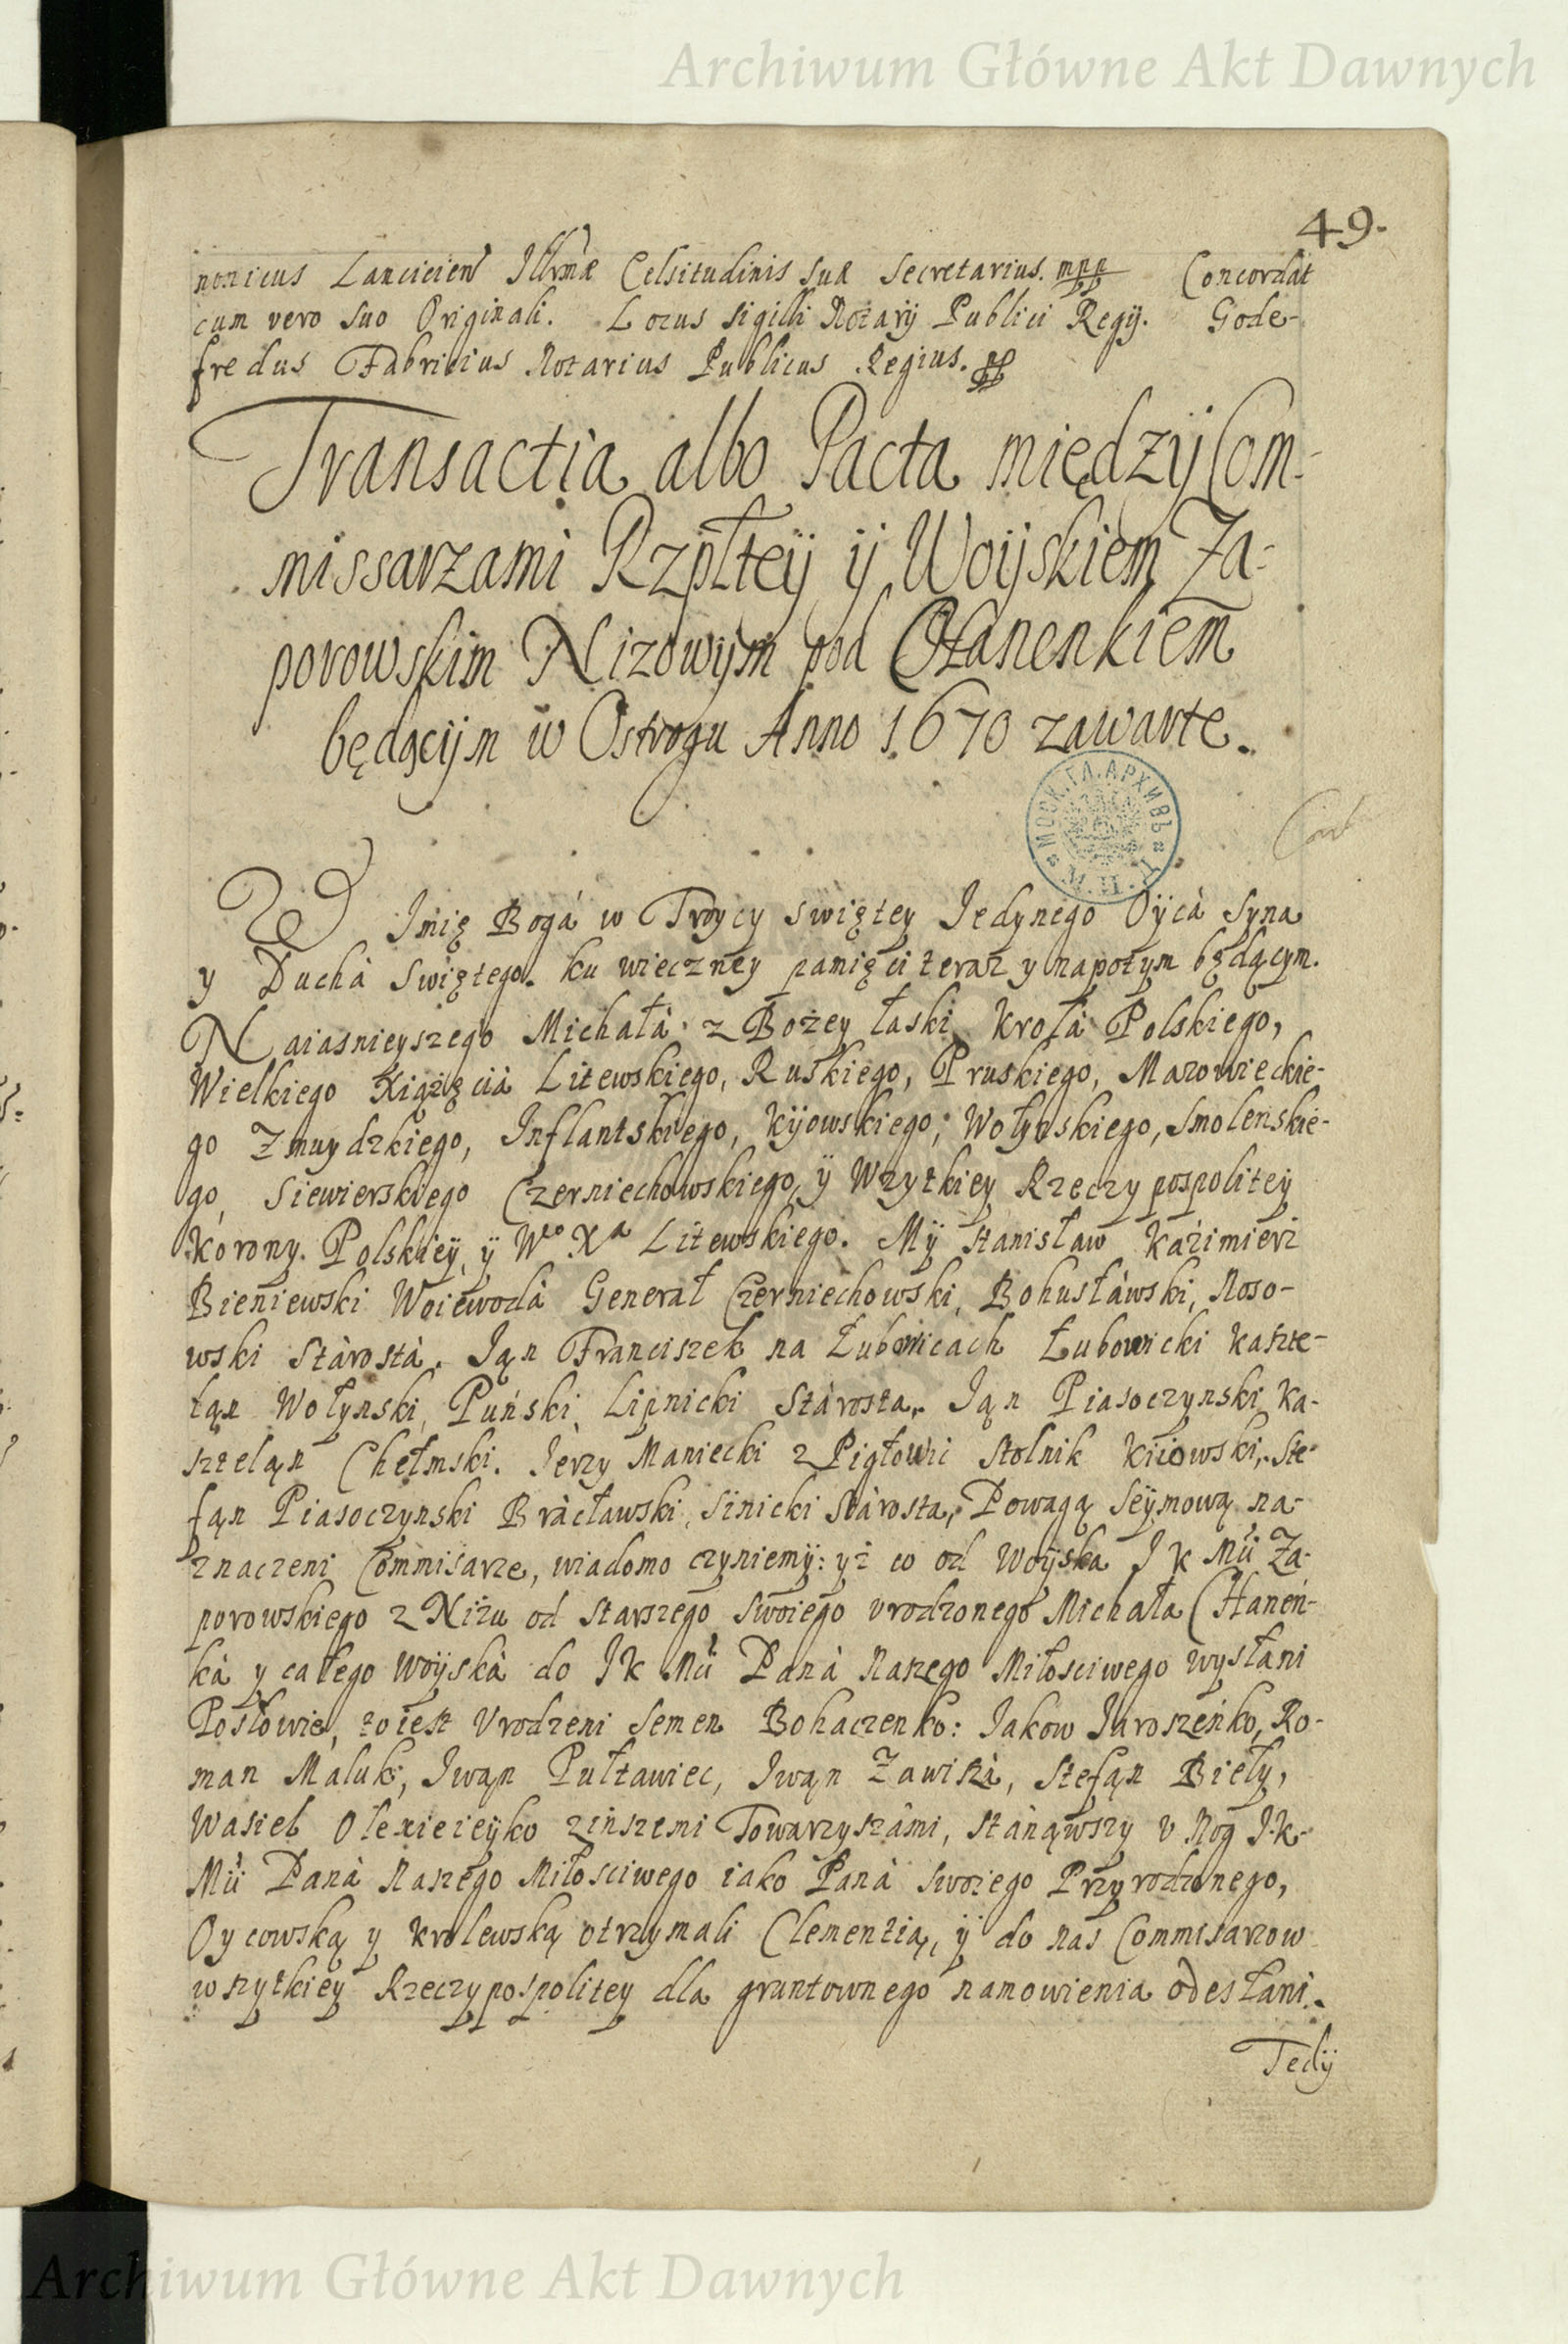 Archiwum Główne Akt Dawnych
49.
nonicus Lancicien Illrmæ Celsitudinis suæ Secretarius. mpp Concordat
cum vero suo Originali. Locus sigilli Notarÿ Publici Regÿ. Gode-
fredus Fabricius Notarius Publicus Regius. mpp
Transactia albo Pacta międzÿ Com-
missarzami Rzpltеÿ ÿ Woÿskiem Za-
porowskim Nizowÿm pod Chanenkiem
będącÿm w Ostrogu Anno 1670 zawarte.
МОСК. ГЛ. АРХИВЪ
W Imię Bogá w Troycy swiętey Jedynego Oÿcà Syna
y Duchà Swiętego. ku wieczney pamięci teraz y napotym będącym.
Naiasnieyszego Michałà z Bożey łaski Krolà Polskiego,
Wielkiego Xiążęcià Litewskiego, Ruskiego, Pruskiego, Mazowieckie-
go Zmuydzkiego, Inflantskiego, Kÿowskiego, Wołynskiego, Smoleńskie-
go, Siewierskiego Czerniechowskiego, ÿ Wszytkiey Rzeczy pospolitey
Korony. Polskieÿ, ÿ Wo Xa Litewskiego. Mÿ Stanisław Kaźimierz
Bieniewski Woiewodà Generał Czerniechowski, Bohusłàwski, Noso-
wski Stàrostà. Ján Franciszek na Łubowicach Łubowicki kaszte-
ląn Wołynski, Puński, Lipnicki Stàrosta. Ján Piasoczynski Ka-
szteląn Chełmski. Jerzy Maniecki z Pigłowic Stolnik Kiiowski, Ste-
fąn Piasoczynski Bràcławski, Sinicki Stàrosta, Powagą Seÿmową na-
znaczeni Commisarze, wiadomo czyniemÿ: yż co od Woÿska J K Mći Za-
porowskiego z Niżu od Starszego swoiego vrodzonego Michała Chaneń-
kà y całego Woÿskà do J K Mći Panà Naszego Miłosciwego wysłani
Posłowie, to iest Vrodzeni Semen Bohaczenko: Jakow Jaroszeńko, Ro-
man Maluk, Iwąn Pułtawiec, Iwąn Zawiszà, Stefąn Bieły,
Wasiel Olexieieÿko z inszemi Towarzyszàmi, stànąwszy v Nog J.K-
Mći Panà Naszego Miłosciwego iako Panà swoiego Przyrodzonego,
Oycowską y krolewską otrzymali Clementią, ÿ do nas Commisarzow
wszytkiey Rzeczypospolitey dla gruntownego namowienia odesłani.
Tedÿ
Archiwum Główne Akt Dawnych